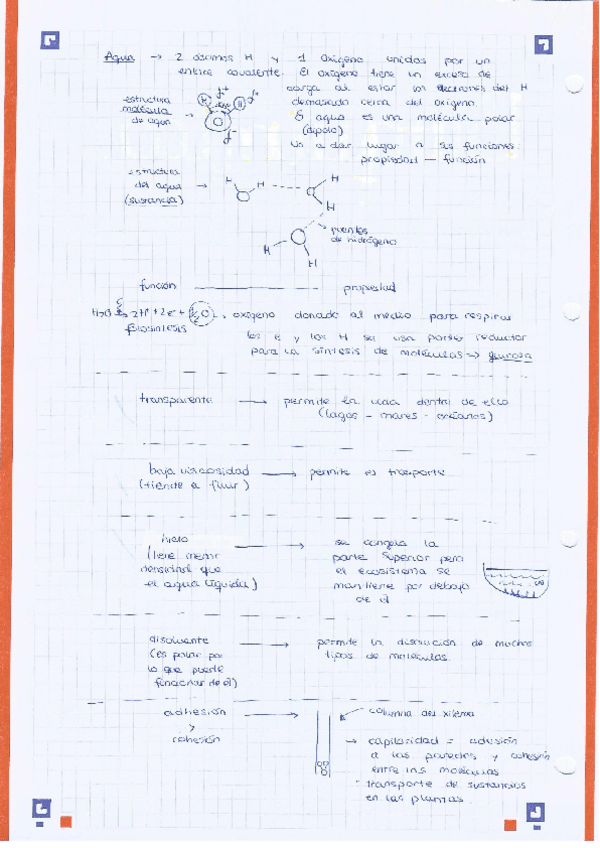 Agua → 2 átomos H y 1 Oxígeno unidos por un
enlace covalente. El oxígeno tiene un exceso de
carga al estar los electrones del H
demasiado cerca del oxígeno.
estructura
molécula
de agua →
H H
O
δ+ δ+
δ-
El agua es una molécula polar
(dipolo)
Va a dar lugar a sus funciones:
propiedad — función
estructura
del agua →
(sustancia)
H H
O
H
H
H
H
puentes
de hidrógeno
función — propiedad
H2O → 2H+ + 2e- + ½O2
oxígeno donado al medio para respirar
fotosíntesis
los e- y los H se usan poder reductor
para la síntesis de moléculas → glucosa
transparente → permite la vida dentro de ella
(lagos - mares - océanos)
baja viscosidad → permite el trasporte
(tiende a fluir)
hielo →
(tiene menor
densidad que
el agua líquida)
se congela la
parte superior pero
el ecosistema se
mantiene por debajo
de él
disolvente →
(es polar por
lo que puede
funcionar de él)
permite la disolución de muchos
tipos de moléculas.
adhesión →
y
cohesión
columna del xilema
→ capilaridad = adhesión
a las paredes y cohesión
entre las moléculas
- transporte de sustancias
en las plantas.